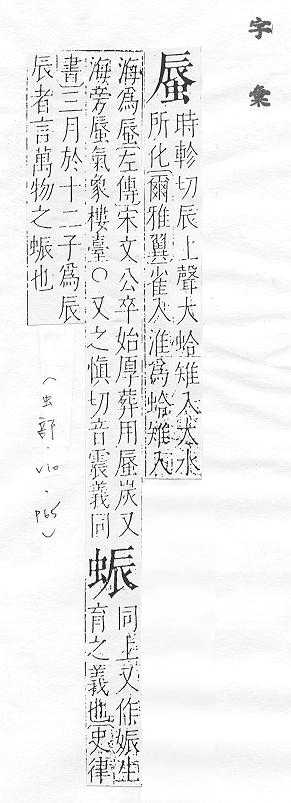 字彙
蜃
時軫切辰上聲大蛤雉入大水
所化爾雅翼雀入淮為蛤雉入
海為蜃左傳宋文公卒始厚葬用蜃炭又
海旁蜃氣象樓臺○又之愼切音震義同
蜄
同上又作娠生
育之義也史律
書三月於十二子為辰
辰者言萬物之蜄也
(虫部.V10.P65)